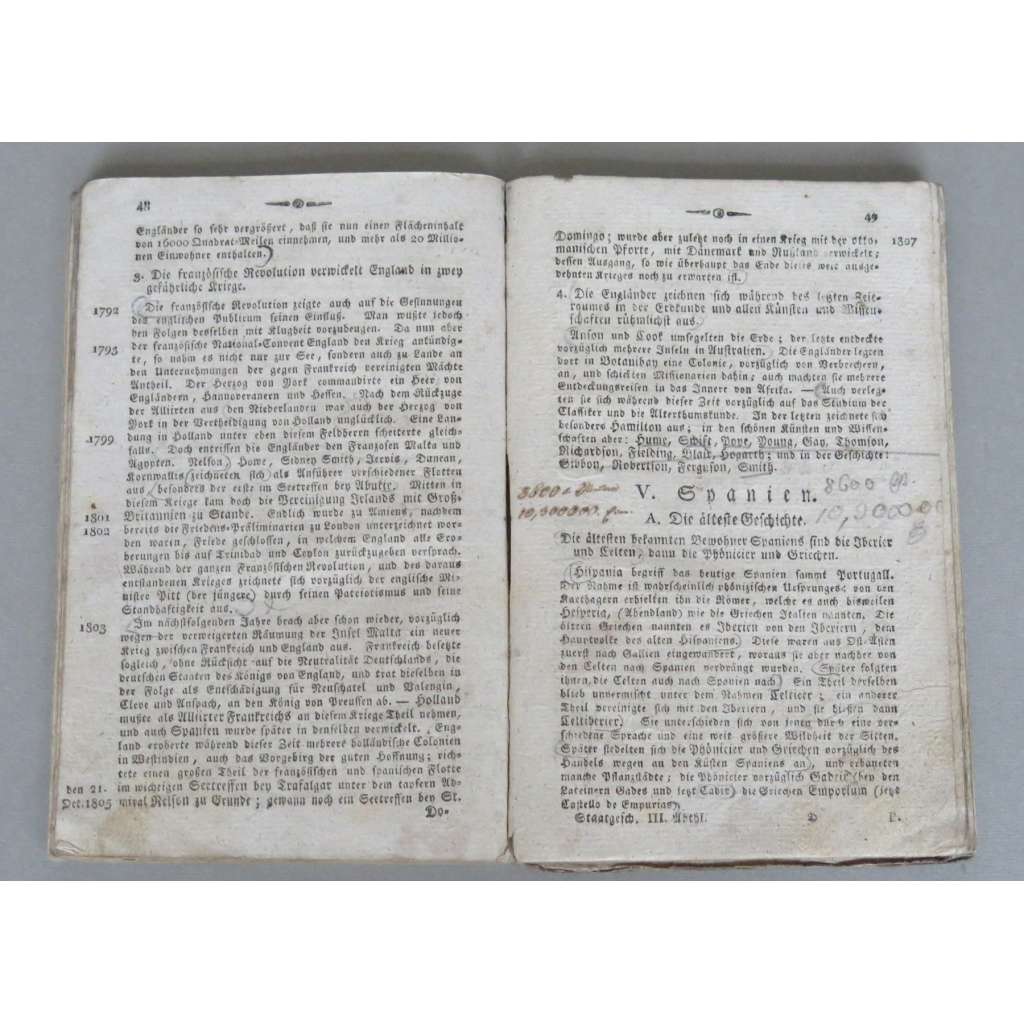 48
Engländer so sehr vergrößert, daß sie nun einen Flächeninhalt
von 16000 Quadrat-Meilen einnehmen, und mehr als 20 Millio-
nen Einwohner enthalten.
3. Die französische Revolution verwickelt England in zwey
gefährliche Kriege.
1792 Die französische Revolution zeigte auch auf die Gesinnungen
des englischen Publicum seinen Einfluß. Man wußte jedoch
den Folgen desselben mit Klugheit vorzubeugen. Da nun aber
1793 der französische National-Convent England den Krieg ankündig-
te, so nahm es nicht nur zur See, sondern auch zu Lande an
den Unternehmungen der gegen Frankreich vereinigten Mächte
Antheil. Der Herzog von York commandirte ein Heer von
Engländern, Hannoveranern und Hessen. Nach dem Rückzuge
der Alliirten aus den Niederlanden war auch der Herzog von
York in der Vertheidigung von Holland unglücklich. Eine Lan-
1799 dung in Holland unter eben diesem Feldherrn scheiterte gleich-
falls. Doch entrissen die Engländer den Franzosen Malta und
Ägypten. Nelson, Howe, Sidney Smith, Jervis, Duncan,
Kornwallis zeichneten sich als Anführer verschiedener Flotten
aus, besonders der erste im Seetreffen bey Abukir. Mitten in
diesem Kriege kam doch die Vereinigung Irlands mit Groß-
1801 Britannien zu Stande. Endlich wurde zu Amiens, nachdem
1802 bereits die Friedens-Präliminarien zu London unterzeichnet wor-
den waren, Friede geschlossen, in welchem England alle Ero-
berungen bis auf Trinidad und Ceylon zurückzugeben versprach.
Während der ganzen Französischen Revolution, und des daraus
entstandenen Krieges zeichnete sich vorzüglich der englische Mi-
nister Pitt (der jüngere) durch seinen Patriotismus und seine
Standhaftigkeit aus.
1803 Im nächstfolgenden Jahre brach aber schon wieder, vorzüglich
wegen der verweigerten Räumung der Insel Malta ein neuer
Krieg zwischen Frankreich und England aus. Frankreich besetzte
sogleich, ohne Rücksicht auf die Neutralität Deutschlands, die
deutschen Staaten des Königs von England, und trat dieselben in
der Folge als Entschädigung für Neuschatel und Valengin,
Cleve und Anspach, an den König von Preussen ab. — Holland
mußte als Alliirter Frankreichs an diesem Kriege Theil nehmen,
und auch Spanien wurde später in denselben verwickelt. Eng-
land eroberte während dieser Zeit mehrere holländische Colonien
in Westindien, auch das Vorgebirg der guten Hoffnung; rich-
tete einen großen Theil der französischen und spanischen Flotte
den 21. im wichtigen Seetreffen bey Trafalgar unter dem tapfern Ad-
Oct. 1805 miral Nelson zu Grunde; gewann noch ein Seetreffen bey St.
Do-
49
Domingo; wurde aber zuletzt noch in einen Krieg mit der otto- 1807
manischen Pforte, mit Dänemark und Rußland verwickelt;
dessen Ausgang, so wie überhaupt das Ende dieses weit ausge-
dehnten Krieges noch zu erwarten ist.
4. Die Engländer zeichnen sich während des letzten Zeit-
raumes in der Erdkunde und allen Künsten und Wissen-
schaften rühmlichst aus.
Anson und Cook umsegelten die Erde; der letzte entdeckte
vorzüglich mehrere Inseln in Australien. Die Engländer legten
dort in Botanibay eine Colonie, vorzüglich von Verbrechern,
an, und schickten Missionarien dahin; auch machten sie mehrere
Entdeckungsreisen in das Innere von Afrika. — Auch verleg-
ten sie sich während dieser Zeit vorzüglich auf das Studium der
Classiker und die Alterthumskunde. In der letzten zeichnete sich
besonders Hamilton aus; in den schönen Künsten und Wissen-
schaften aber: Hume, Schift, Pope, Young, Gay, Thomson,
Richardson, Fielding, Blair, Hogarth; und in der Geschichte:
Gibbon, Robertson, Ferguson, Smith.
8600 8600
V. Spanien.
10,300000
A. Die älteste Geschichte.
Die ältesten bekannten Bewohner Spaniens sind die Iberier
und Celten, dann die Phönicier und Griechen.
Hispania begriff das heutige Spanien sammt Portugall.
Der Nahme ist wahrscheinlich phönizischen Ursprunges: von den
Karthagern erhielten ihn die Römer, welche es auch bisweilen
Hesperia, (Abendland) wie die Griechen Italien nannten. Die
ältren Griechen nannten es Iberien von den Iberiern, dem
Hauptvolke des alten Hispaniens. Diese waren aus Ost-Asien
zuerst nach Gallien eingewandert, woraus sie aber nachher von
den Celten nach Spanien verdrängt wurden. Später folgten
ihnen die Celten auch nach Spanien nach. Ein Theil derselben
blieb unvermischt unter dem Nahmen Celtiker; ein anderer
Theil vereinigte sich mit den Iberiern, und sie hießen dann
Celtiberier. Sie unterschieden sich von jenen durch eine ver-
schiedene Sprache und eine weit größere Wildheit der Sitten.
Später siedelten sich die Phönicier und Griechen vorzüglich des
Handels wegen an den Küsten Spaniens an, und erbaueten
manche Pflanzstädte; die Phönicier vorzüglich Gadeir (bey den
Lateinern Gades und jetzt Cadix) die Griechen Emporium (jetzt
Castello de Empurias).
Staatgesch. III. Abthl. D P.